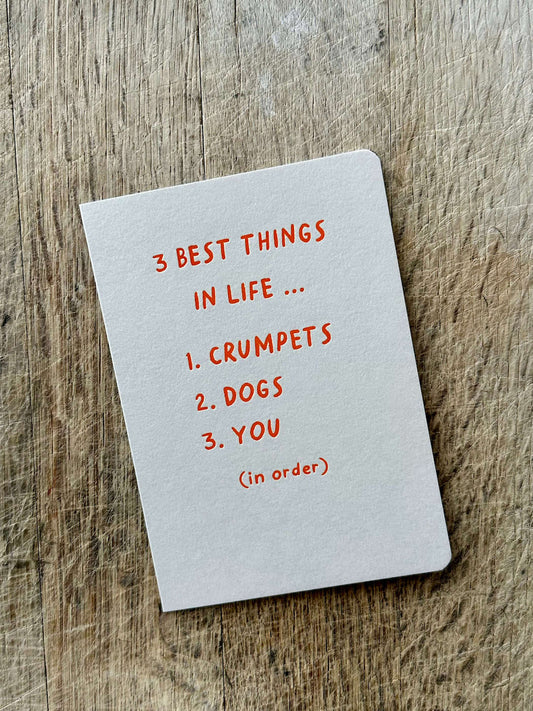 3 BEST THINGS
IN LIFE ...
1. CRUMPETS
2. DOGS
3. YOU
(in order)